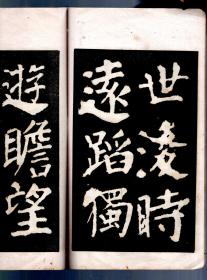 世凌時
遠蹈獨
遊瞻望